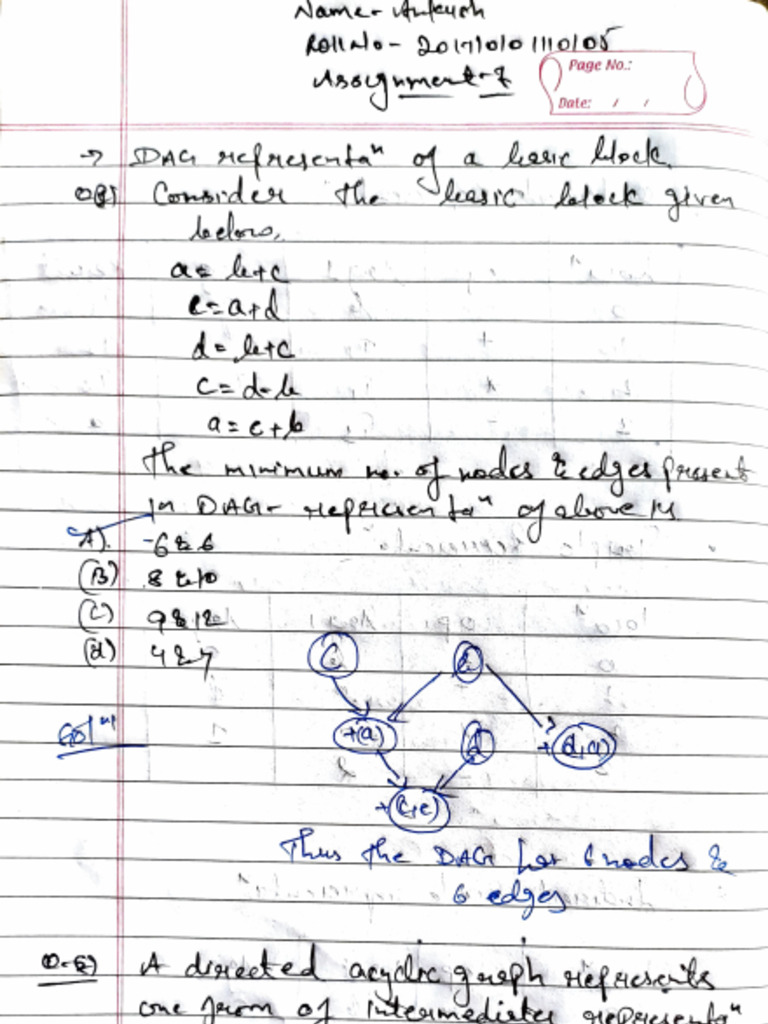 Name- Ankush
Roll No- 2017/01/01110105
Assignment-7
Page No.:
Date: / /
→ DAG representaⁿ of a basic block
Consider the basic block given
below,
a = b+c
e = a+d
d = b+c
c = d-b
a = e+b
The minimum no. of nodes & edges present
in DAG- representaⁿ of above is
A). -6 & 6
(B) 8 & 10
(C) 9 & 12
(d) 4 & 7
c b
Solⁿ +(a) d + d,a
+ e,c
Thus the DAG has 6 nodes &
6 edges
A directed acyclic graph represents
one from of intermediates representaⁿ